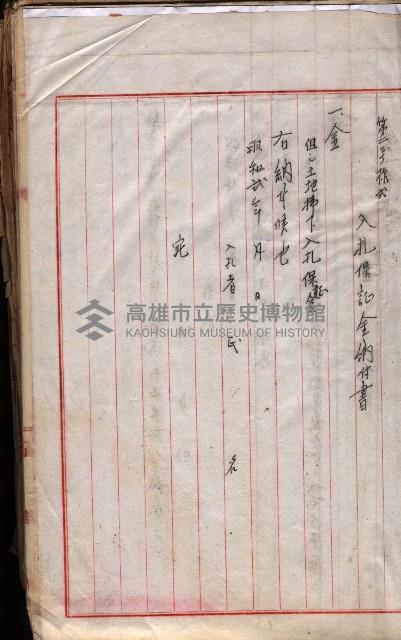 第二号様式
入札保証金納付書
一、金
但シ土地拂下入札保証金
右納付候也
昭和弐年 月 日
入札者 氏 名
宛
高雄市立歷史博物館
KAOHSIUNG MUSEUM OF HISTORY